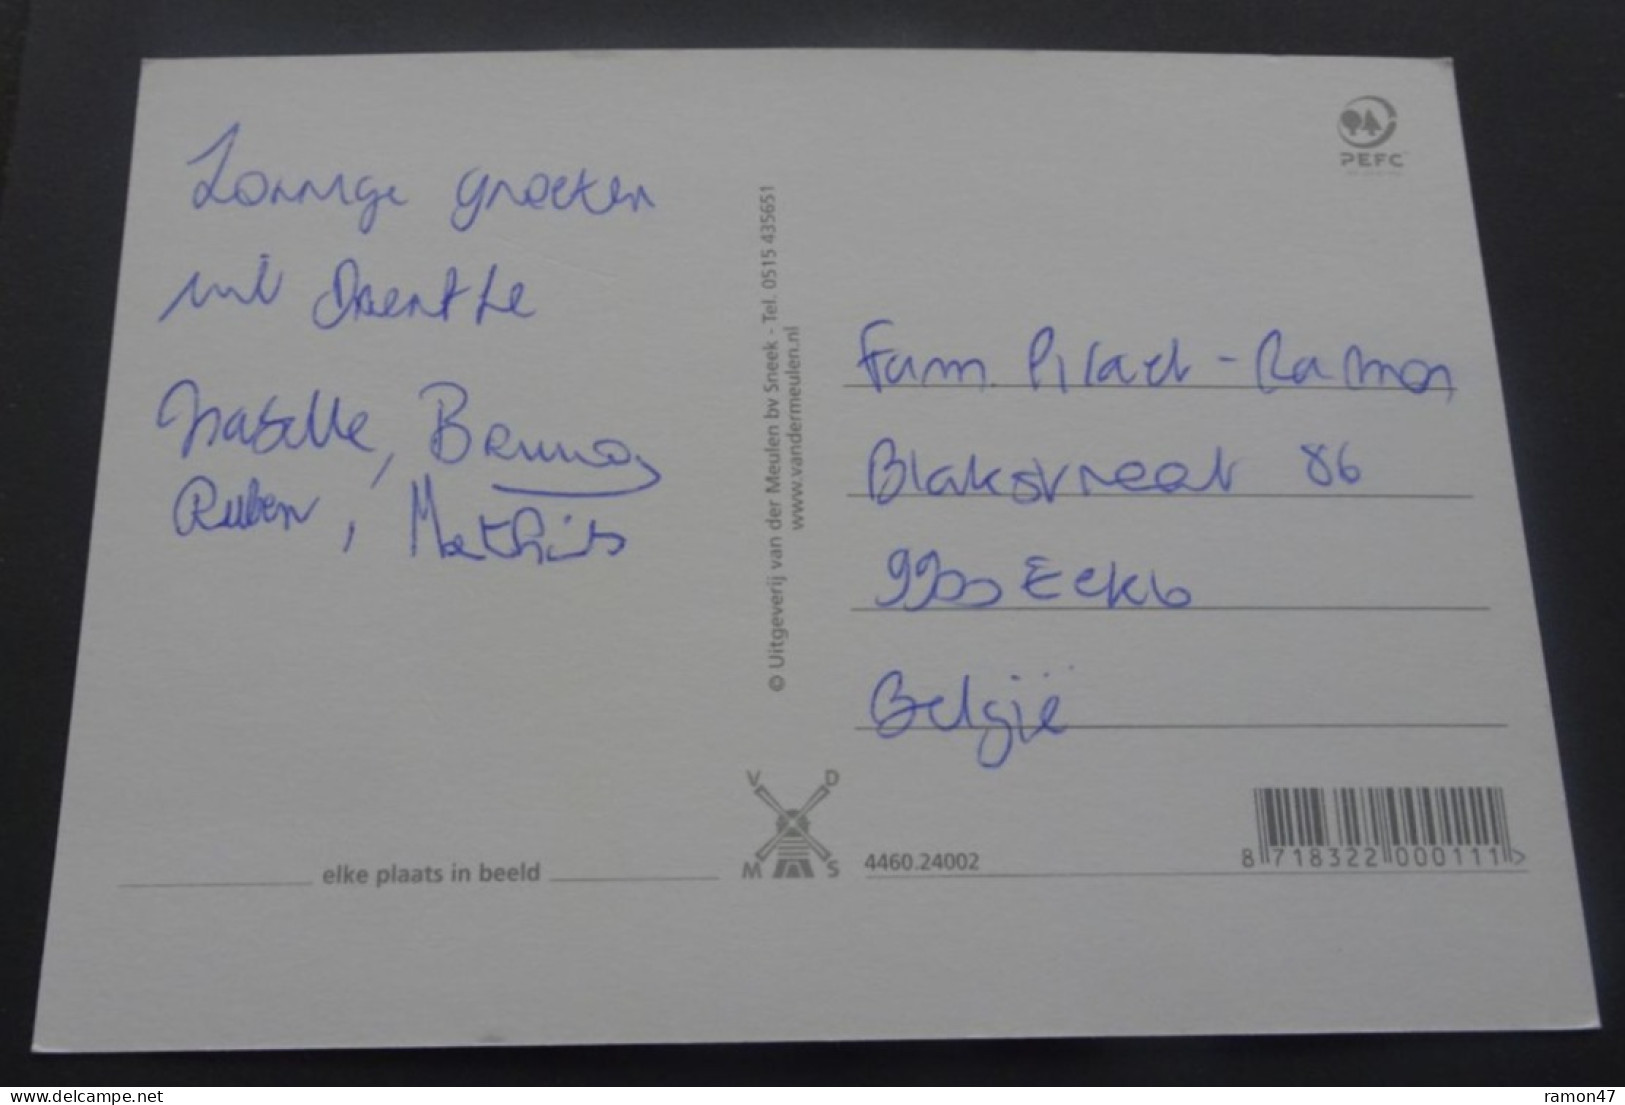 Zonnige groeten
uit Drenthe
Isabelle, Bruno,
Ruben, Mathijs
© Uitgeverij van der Meulen bv Sneek - Tel. 0515 435651
www.vandermeulen.nl
PEFC
Fam. Pilaet - Ramon
Blakstraat 86
9900 Eeklo
België
V D
M S
elke plaats in beeld
4460.24002
8 718322 000111 >
delcampe.net
ramon47